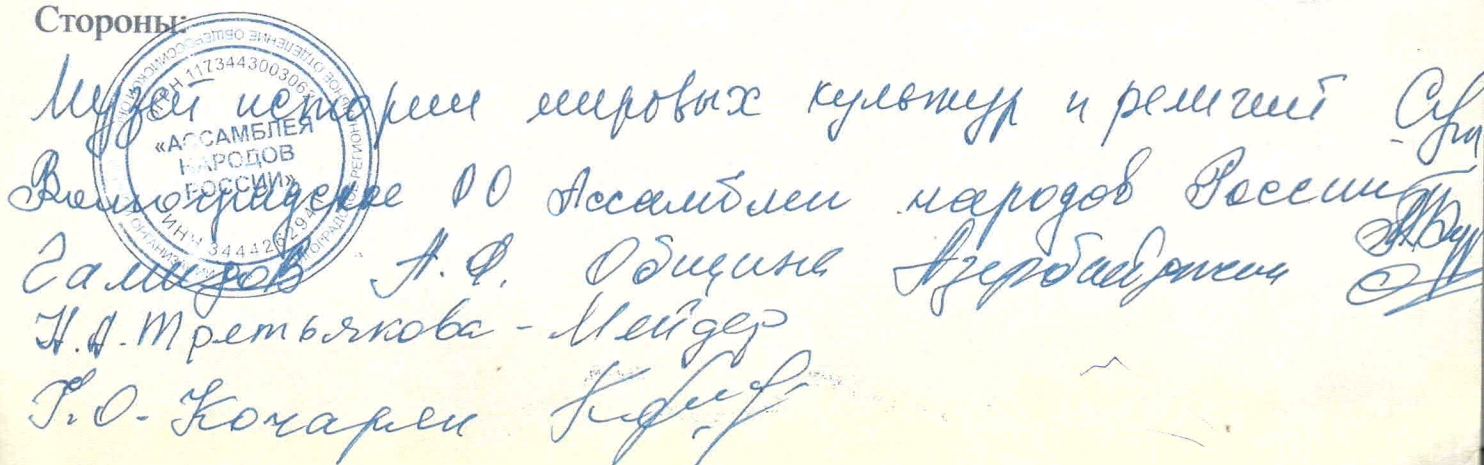 Стороны:
Музей истории мировых культур и религий
Волгоградское РО Ассамблеи народов России
Гамидов А.Ф. Община Азербайджан
Н.А. Третьякова - Мейдер
Г.О. Кочарян
«АССАМБЛЕЯ
НАРОДОВ
РОССИИ»